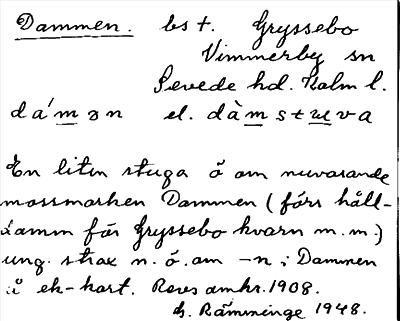 Dammen. bs t. Gryssebo
Vimmerby sn
Sevede hd. Kalm l.
dá'mən el. dàmstuva
En liten stuga ö om nuvarande
mossmarken Dammen (förr håll-
damm för Gryssebo kvarn m.m.)
ung. strax n. ö. om -n i Dammen
å ek-kart. Revs omkr. 1908.
G. Rämminge 1948.